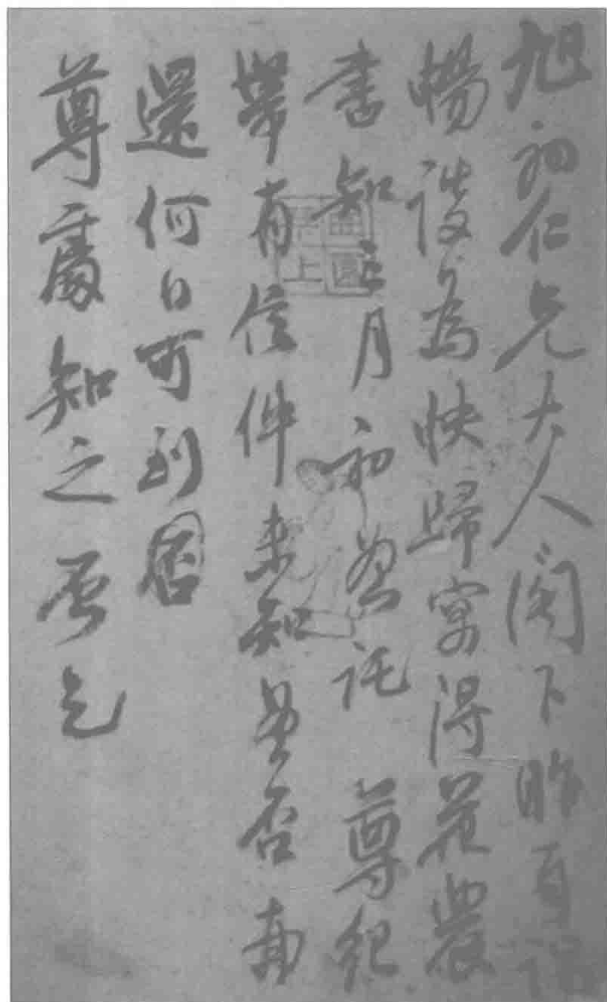 旭初仁兄大人阁下昨有
暢談為快歸寓得花農
書知三月初曾託尊紀
帶有信件未知其否南
還何日可到否
尊處知之否乞